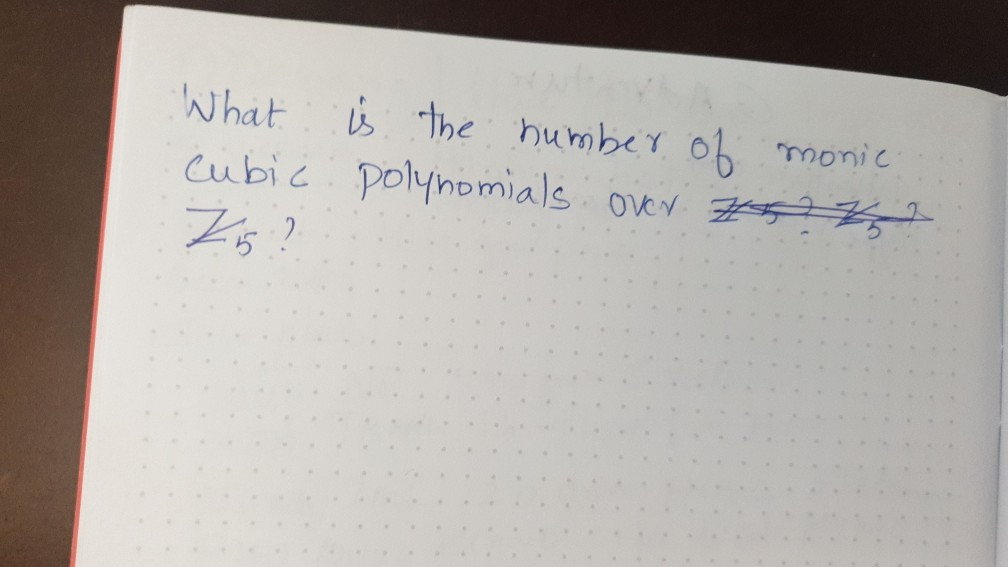 What is the number of monic
cubic polynomials over Z5? Z5?
Z5?